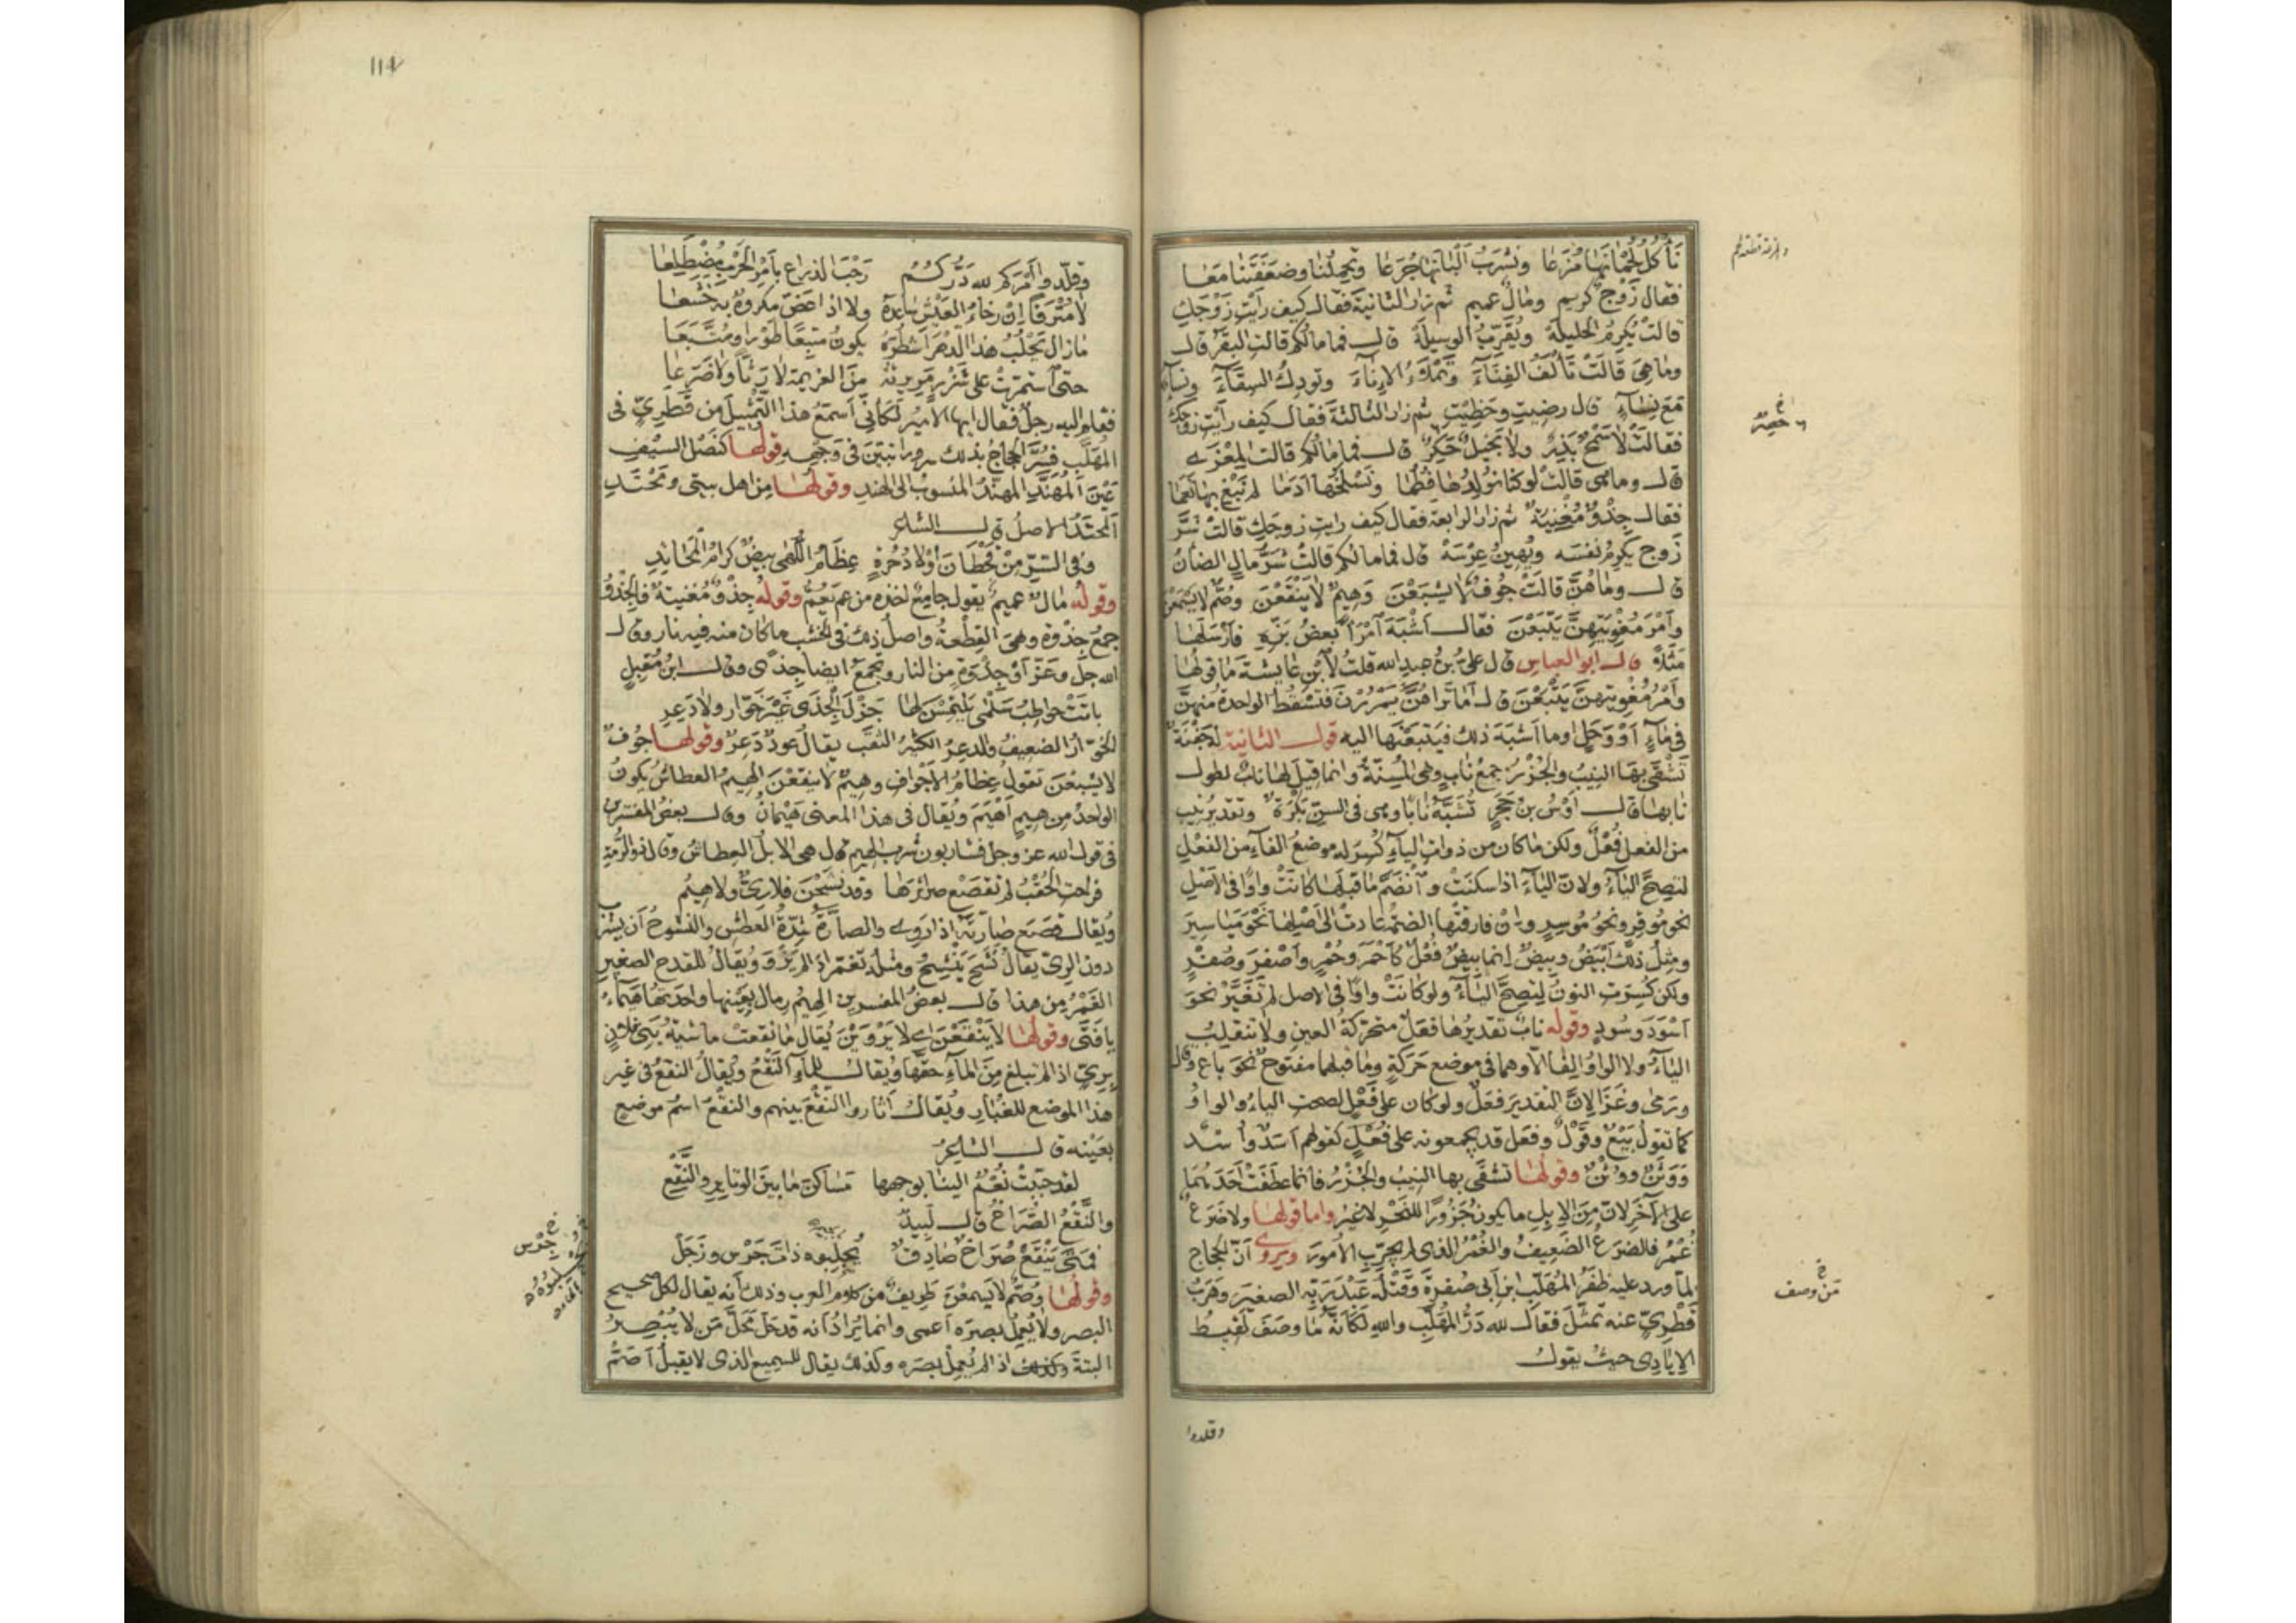 نَأكُلُ لُحْمَانَهَا مُزَعًا ونَشرَبُ ألبَانَهَا جُرَعًا وتحمِلُنَا وضَعَفَتَنَا مَعًا
فقال زَوْجٌ كريم ومالٌ عميم ثم زار الثانيةَ فقال كيف رَأيتِ زَوْجَكِ
قالتْ يُكرِمُ الحليلةَ ويُقَرِّبُ الوسيلةَ قال فما مالُكم قالت البقَرُ قال
وما هي قَالَتْ تَألَفُ الفِنَاءَ وتَمْلَأُ الإناءَ وتُودِكُ السِّقَاءَ ونساءٌ
مَعَ نِسَاءٍ قال رضيتِ وحَظِيتِ ثم زار الثالثةَ فقال كيف رأيتِ زوجَكِ
فقالَتْ لا سَمْحٌ بَذِرٌ ولا بَخيلٌ حَكِرٌ قال فما مالُكم قالت المِعْزَى
قال وما هي قالت لو كنا نُولِدُها فُطُمًا ونَسْلَخُهَا أَدَمًا لم نَبْغِ بها نَعَمًا
فقال جِذْوٌ مُغْنِيَةٌ ثم زار الرابعةَ فقال كيف رايتِ زوجَكِ قالتْ شَرُّ
زَوجٍ يُكرِمُ نفسَه ويُهينُ عِرْسَهْ قال فما مالكم قالتْ شَرُّ مالٍ الضانُ
قال وما هُنَّ قالَتْ جُوفٌ لا يَشْبَعْنَ وَهِيمٌ لا يَنْقَعْنَ وصُمٌّ لا يَسْمَعْنَ
وأَمْرَ مُغْوِيَتِهِنَّ يَتْبَعْنَ فقال أشْبَهَ امْرَأً بعضُ بَزِّهِ فأرسَلَها
مَثَلًا قال ابو العباس قال عليُّ بنُ عبدِ الله قلتُ لابْنِ عايشةَ ما قولُها
وأَمْرَ مُغْوِيَتِهِنَّ يَتْبَعْنَ قال أمَا تَراهُنَّ يَمْرُرْنَ فتَسْقُطُ الواحدةُ منهنَّ
في ماءٍ أَوْ وَحَلٍ او ما أشْبَهَ ذلك فيَتْبَعْنَها اليه قول الثانية له جَفْنَةٌ
تَشْقَى بهَا النِيبُ والجُزُرْ جمعُ نابٍ وهي المُسِنَّةُ وانما قيلَ لها نابٌ لطول
نابها قال أوْسُ بن حَجَرٍ تُشَبَّهُ نابًا وهي في السِنِّ بَكْرَةٌ وتقديرُ نِيبٍ
من الفعل فُعْلٌ ولكن ما كان من ذوات الياءِ كُسِرَ له موضعُ الفاءِ من الفعْلِ
لتصِحَّ الياءُ ولانّ الياءَ اذا سكنَتْ وانضَمَّ ما قبلَها كانَتْ واوًا في الأصْلِ
نحو مُوقِنٍ ونحوُ مُوسِرٍ وان فارقَتْها الضمةُ عادتْ الى أصْلِها نَحْوَ مَياسِيرَ
ومِثلُ ذلك أبْيَضُ وبيضٌ إنما بِيضٌ فُعْلٌ كأحمَر وحُمْرٍ وأَصْفَرَ وصُفْرٍ
ولكن كُسِرَتِ النونُ لتصِحَّ الياءُ ولو كانَتْ واوًا في الاصل لم تتَغَيَّرْ نحوَ
أسْوَدَ وسُودٍ وقوله نابٌ تقديرُها فَعَلٌ متحرّكةُ العينِ ولا تنقلِبُ
الياءُ ولا الواوُ الفًا الا وهما في موضع حَرَكةٍ وما قبلهما مفتوحٌ نحوَ باع وقال
ورَمَى وغَزَا لانَّ التقديرَ فَعَلَ ولو كان على فَعْلٍ لصحت الياءُ والواوُ
كما تقولُ بَيْعٌ وقَوْلٌ وفَعَلٌ قد يجمعونه على فُعْلٍ كقولهم أسَدٌ وأُسْدٌ
ووَثَنٌ ووُثْنٌ وقولُها تشقَى بها النيبُ والجُزُرْ فانما عطَفَتْ أحَدَهُما
على الآخَرِ لان من الإبِلِ ما يكون جَزُورًا للنَّحْرِ لا غيرُ واما قولها ولا ضَرَعٌ
غُمْرٌ فالضرَعُ الضعيفُ والغُمْرُ الذي لم يُجرّبِ الأمورَ ويروى أنّ الحجاج
لمّا ورد عليه ظَفَرُ المُهَلَّبِ ابن أبي صُفرةَ وقَتْلُه عَبْدَ رَبِّه الصغيرَ وهَرَبُ
قَطَرِيٍّ عنه تمثَّلَ فقال لله دَرُّ المُهَلَّبِ والله لكأنّه ما وصَفَ لقيطٌ
الإيادي حيث يقولُ
وقلدوا
خ حصِرٌ
خ مَن وصف
114
وقلِّدوا أمْرَكم لله دَرُّكُمُ رَحْبَ الذراعِ بأمْرِ الحَرْبِ مُضْطَلِعا
لا مُتْرَفًا إنْ رخاءُ العَيْشِ ساعدَهُ ولا إذا عضَّ مكروهٌ به خَشَعا
ما زال يَحْلُبُ هذا الدهرَ أشطُرَهُ يكونُ متبِعًا طَوْرًا ومُتَّبَعَا
حتى استمرَّتْ على شَزْرٍ مَرِيرتُهُ مرَّ العزيمةِ لا رَثًّا ولا ضَرَعا
فقام اليه رجلٌ فقال ايها الامير لكأنّي أسمَعُ هذا التمثيلَ من قَطَرِيٍّ في
المُهَلَّبِ فسُرَّ الحجّاجُ بذلك سرورا تبيّنَ في وجهِه قولها كنَصْلِ السيفِ
عَيْنِ المُهَنَّدِ المهنّدُ المنسوبُ الى الهند وقولها من اهل بيتي ومَحْتَدي
المَحتَدُ الاصلُ قال الشاعر
وفي السِّرِّ مِنْ قَحْطانَ أوْلادُ حُرَّةٍ عِظامُ اللُّهَى بيضٌ كرامُ المَحاتِدِ
وقوله مالٌ عميمٌ يقول جامعٌ اخذه من عم يَعُمُّ وقولُه جِذْوٌ مُغنيةٌ فالجِذْوُ
جمعُ جِذْوَةٍ وهي القِطْعةُ واصلُ ذلك في الخشبِ ما كان منه فيه نار وقال
الله جلّ وعَزَّ أوْ جِذْوَةٍ من النار وتُجمَعُ ايضا جِذًى وقال ابنُ مُقبِلٍ
باتَتْ حواطِبُ سَلْمَى يلتمِسْنَ لها جَزْلَ الجِذَى غيرَ خَوّارٍ ولا دَعِرِ
الخَوّارُ الضعيفُ والدعِرُ الكثيرُ الثُقَبِ يقال عودٌ دَعِرٌ وقولها جوفٌ
لا يشبعْنَ تقولُ عِظامُ الأجوافِ وهيمٌ لا ينقَعْنَ الهيمُ العطاشُ يكونُ
الواحدُ من هيمٍ أهْيَمَ ويُقال في هذا المعنى هَيْمانُ وقال بعضُ المفسّرين
في قول الله عز وجل فشاربون شُربَ الهيم قال هي الابلُ العِطاشُ وقال ذو الرُّمّةِ
فراحت الحُقْبُ لم تقصَعْ صرائرَها وقد نَشَحْنَ فلا رِيٌّ ولا هِيمُ
ويُقال قصَعَ صارّتَهُ اذا رَوِيَ والصارّةُ شِدّةُ العَطَشِ والنُّشوحُ أنْ يشربَ
دون الرِيِّ يقال نَشَحَ يَنْشَحُ ومثلُه تغمّر اذا لم يَرْوَ ويُقالُ للقدح الصغير
الغُمَرُ من هذا قال بعضُ المفسرين الهيمُ رِمالٌ بعينِها واحدتُها هَيماءُ
يا فَتَى وقولها لا يَنْقَعْنَ اي لا يَرْوَيْنَ يُقالُ ما نقعتْ ماشيةُ بني فلانٍ
بِرِيٍّ اذا لم تبلغ مِنَ الماءِ حقَّها ويُقال للماءِ النَّقْعُ ويُقالُ النقعُ في غير
هذا الموضع للغُبارِ ويُقال أثاروا النقْعَ بينهم والنقْعُ اسمُ موضعٍ
بعَيْنِه قال الشاعرُ
لقد حبّبتْ نُعْمٌ الينا بوجهها مَساكنَ ما بين الوتايرِ والنَّقْعِ
والنَّقْعُ الصُّراخُ قال لَبيدٌ
فمتى يَنْقَعْ صُراخٌ صادِقٌ يُحْلِبوه ذاتَ جَرْسٍ وزَجَلْ
وقولُها وصُمٌّ لا يسمعْنَ طَريفٌ من كلام العرب وذلك أنه يقال لكل صحيح
البصر ولا يُعمِلُ بصرَه أعمى وانما يُرادُ أنه قد حَلّ مَحَلَّ مَن لا يُبْصِرُ
البتةَ اذا لم يُعمِلْ بصرَه وكذلك يقال للسميع الذي لا يقبلُ أصَمُّ
خ جَرْس